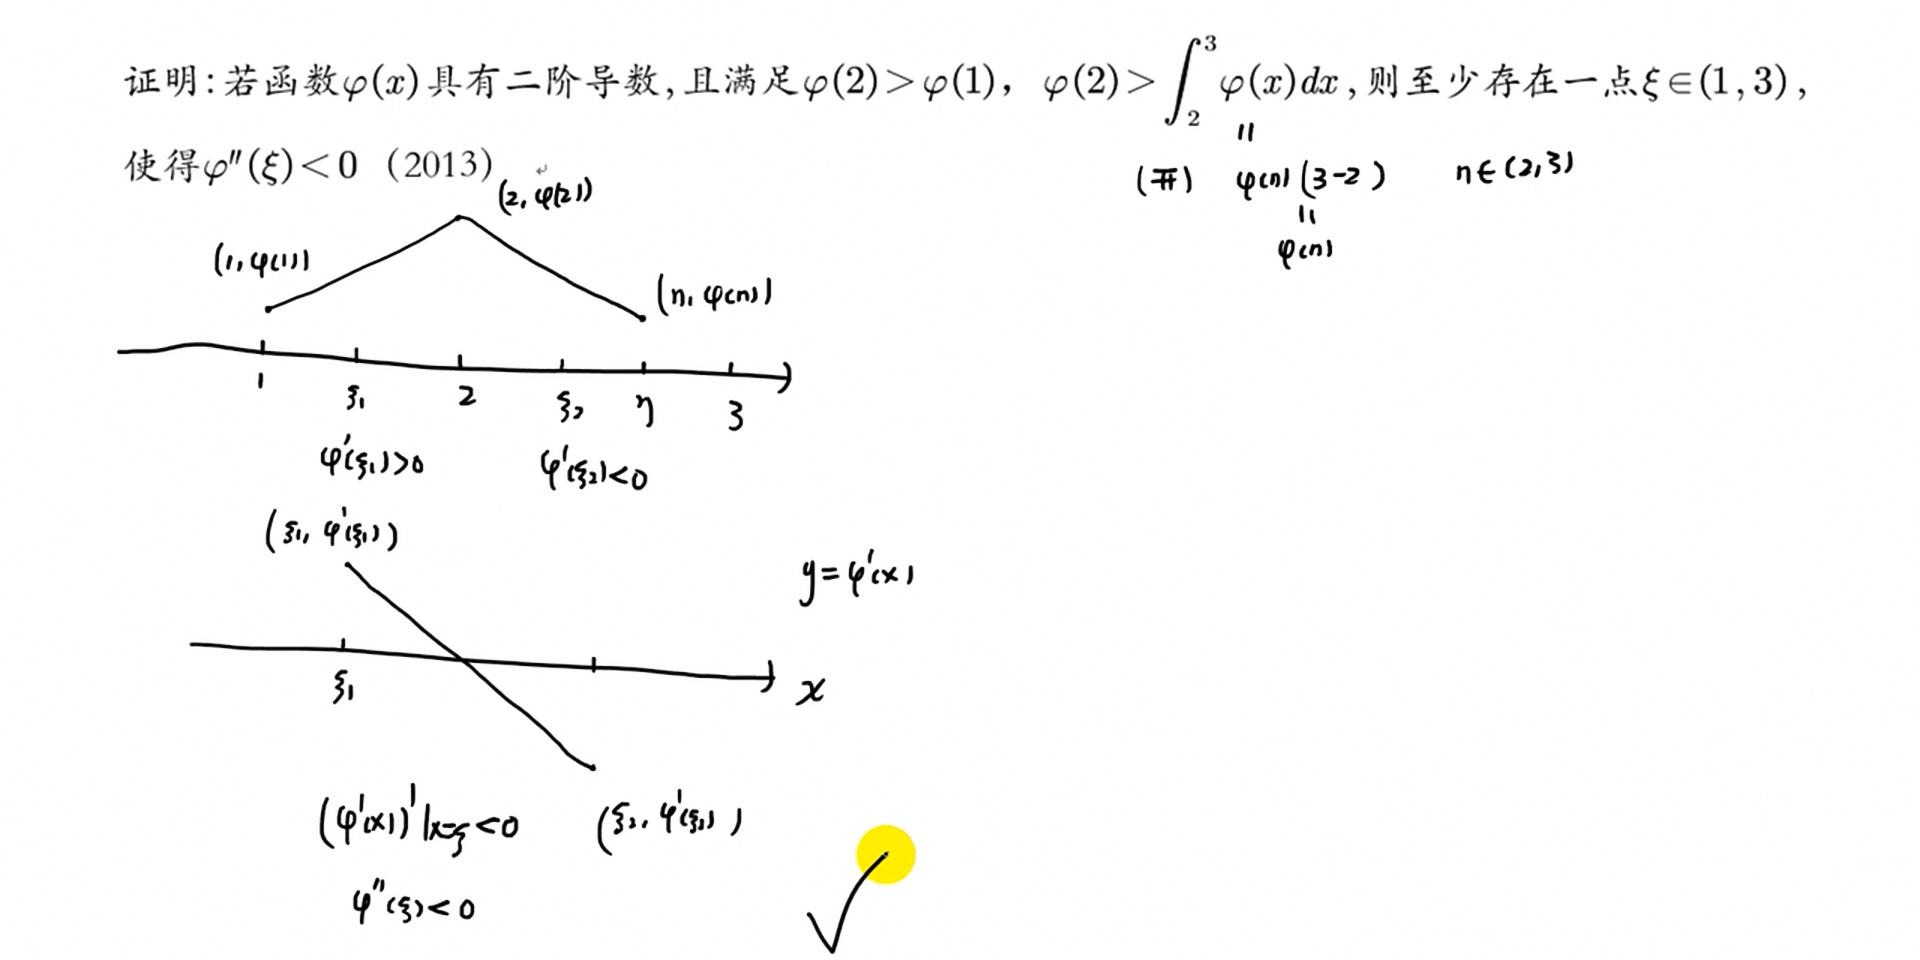 证明:若函数φ(x)具有二阶导数,且满足φ(2)>φ(1), φ(2)>∫₂³φ(x)dx,则至少存在一点ξ∈(1,3),
使得φ″(ξ)<0 (2013)
||
(开) φ(η)(3-2) η∈(2,3)
||
φ(η)
(2, φ(2))
(1, φ(1))
(η, φ(η))
1 ξ₁ 2 ξ₂ η 3
φ′(ξ₁)>0 φ′(ξ₂)<0
(ξ₁, φ′(ξ₁))
y=φ′(x)
ξ₁ x
(φ′(x))′|x=ξ<0 (ξ₂, φ′(ξ₂))
φ″(ξ)<0